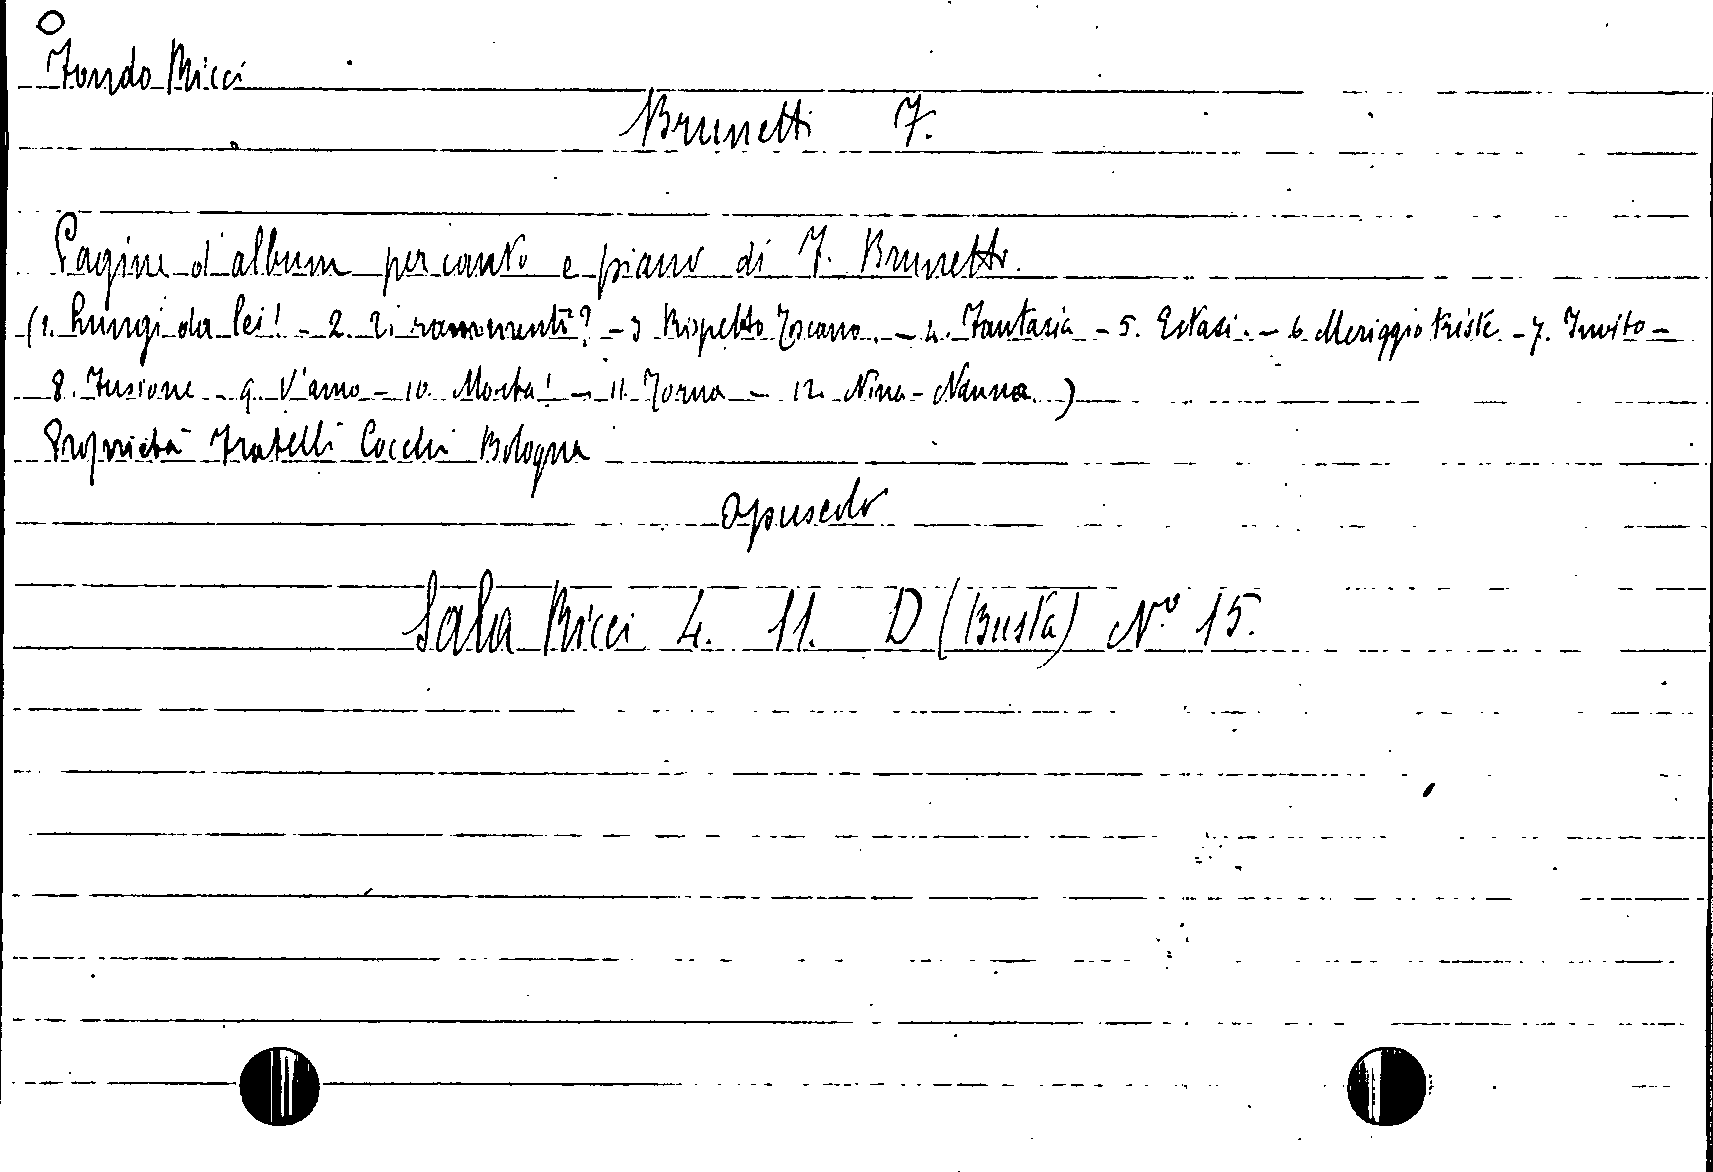 Fondo Ricci
Brunetti F.
Pagine d'album per canto e piano di F. Brunetti.
(1. Lungi da lei! - 2. Ti rammenti? - 3 Rispetto Toscano. - 4. Fantasia - 5. Estasi. - 6. Meriggio triste - 7. Invito -
8. Fusione - 9. V'amo - 10. Morta! - 11. Torna - 12. Nina-Nanna.)
Proprietà Fratelli Cocchi Bologna
opuscolo
Sala Ricci 4. 11. D (Busta) Nº 15.